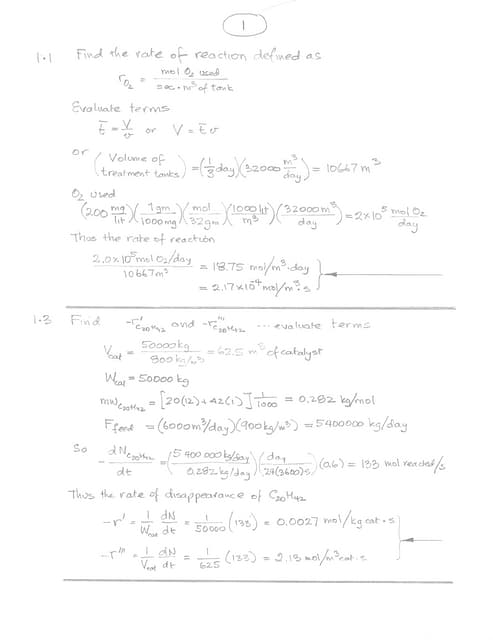 1
1.1 Find the rate of reaction defined as
r_O2 = mol O2 used / sec·m³ of tank
Evaluate terms
t̄ = V/v or V = t̄ v
or (Volume of treatment tanks) = (1/3 day)(32000 m³/day) = 10667 m³
O2 used
(200 mg/lit)(1gm/1000mg)(mol/32gm)(1000 lit/m³)(32000m³/day) = 2×10⁵ mol O2/day
Thus the rate of reaction
2.0×10⁵ mol O2/day / 10667m³ = 18.75 mol/m³·day
= 2.17×10⁻⁴ mol/m³·s
1.3 Find -r'_C20H42 and -r'''_C20H42 ... evaluate terms
V_cat = 50000kg / 800 kg/m³ = 62.5 m³ of catalyst
W_cat = 50000 kg
mw_C20H42 = [20(12)+42(1)] 1/1000 = 0.282 kg/mol
F_feed = (6000m³/day)(900kg/m³) = 5400000 kg/day
So - dN_C20H42/dt = (5 400 000 kg/day / 0.282 kg/day)(day / 24(3600)s)(0.6) = 133 mol reacted/s
Thus the rate of disappearance of C20H42
-r' = 1/W_cat dN/dt = 1/50000 (133) = 0.0027 mol/kg cat·s
-r''' = 1/V_cat dN/dt = 1/625 (133) = 2.13 mol/m³cat·s